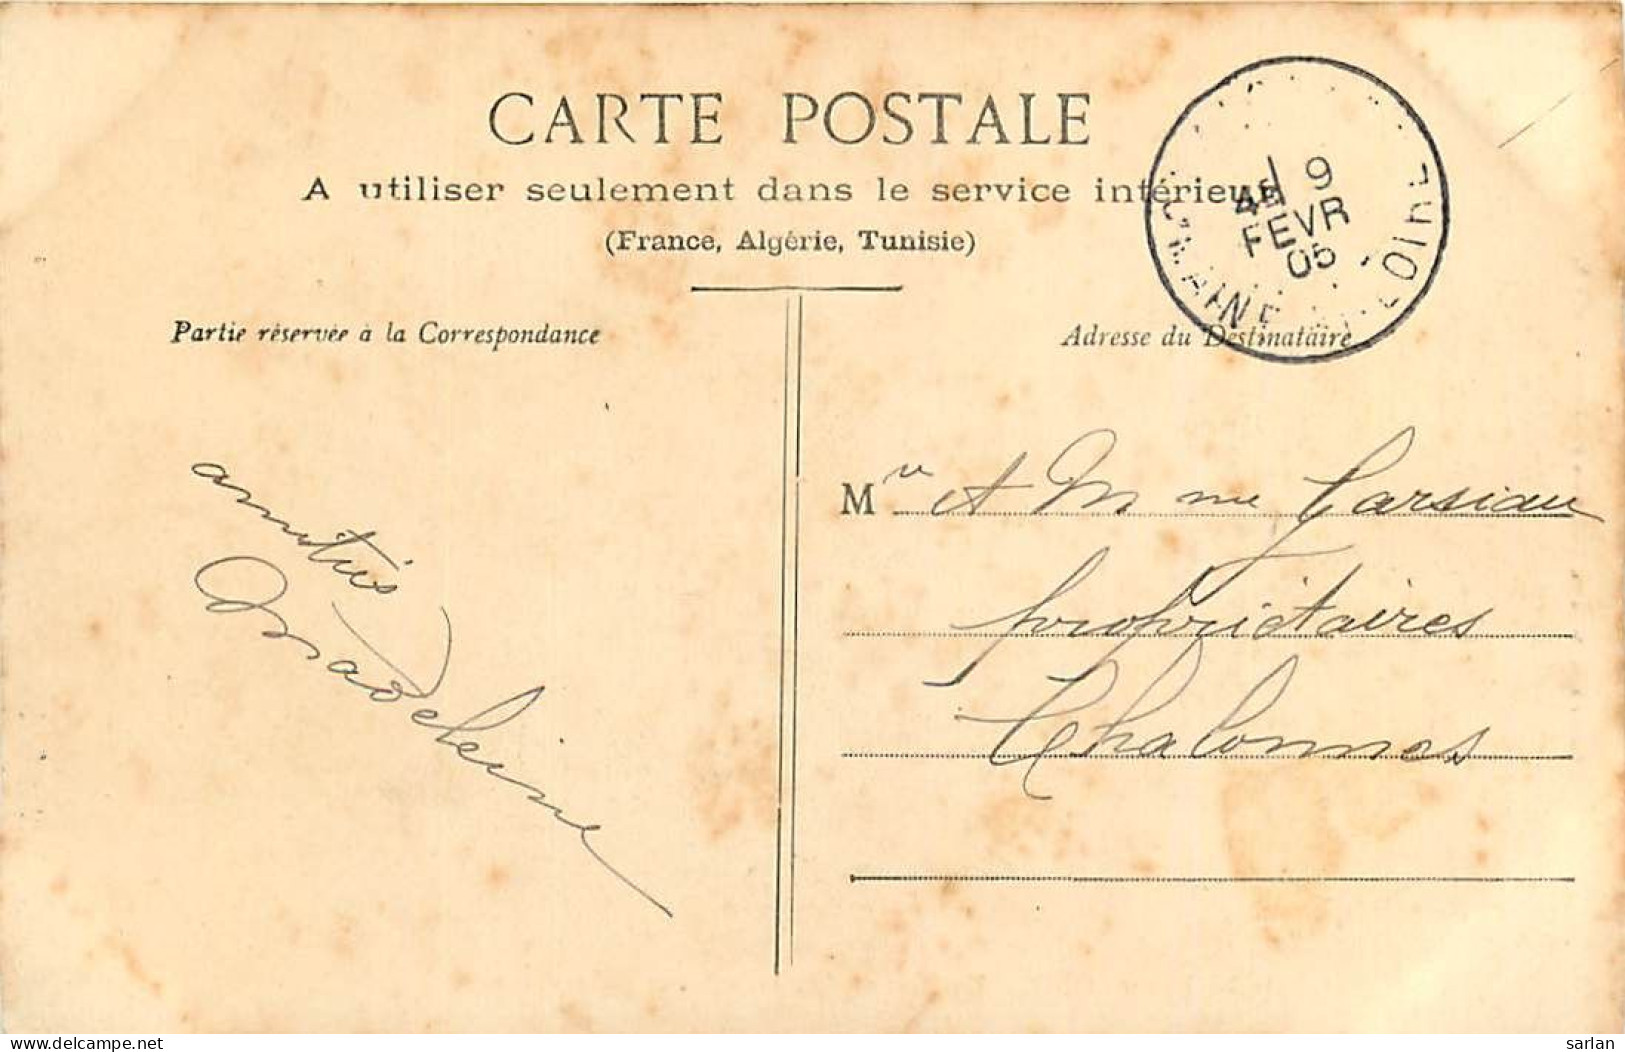 CARTE POSTALE
A utiliser seulement dans le service intérieur
(France, Algérie, Tunisie)
Partie réservée à la Correspondance
Adresse du Destinataire
19
FEVR
05
MAINE LOIRE
amitiés
Madeleine
M et Mme
propriétaires
Chalonnes
delcampe.net
sarlan